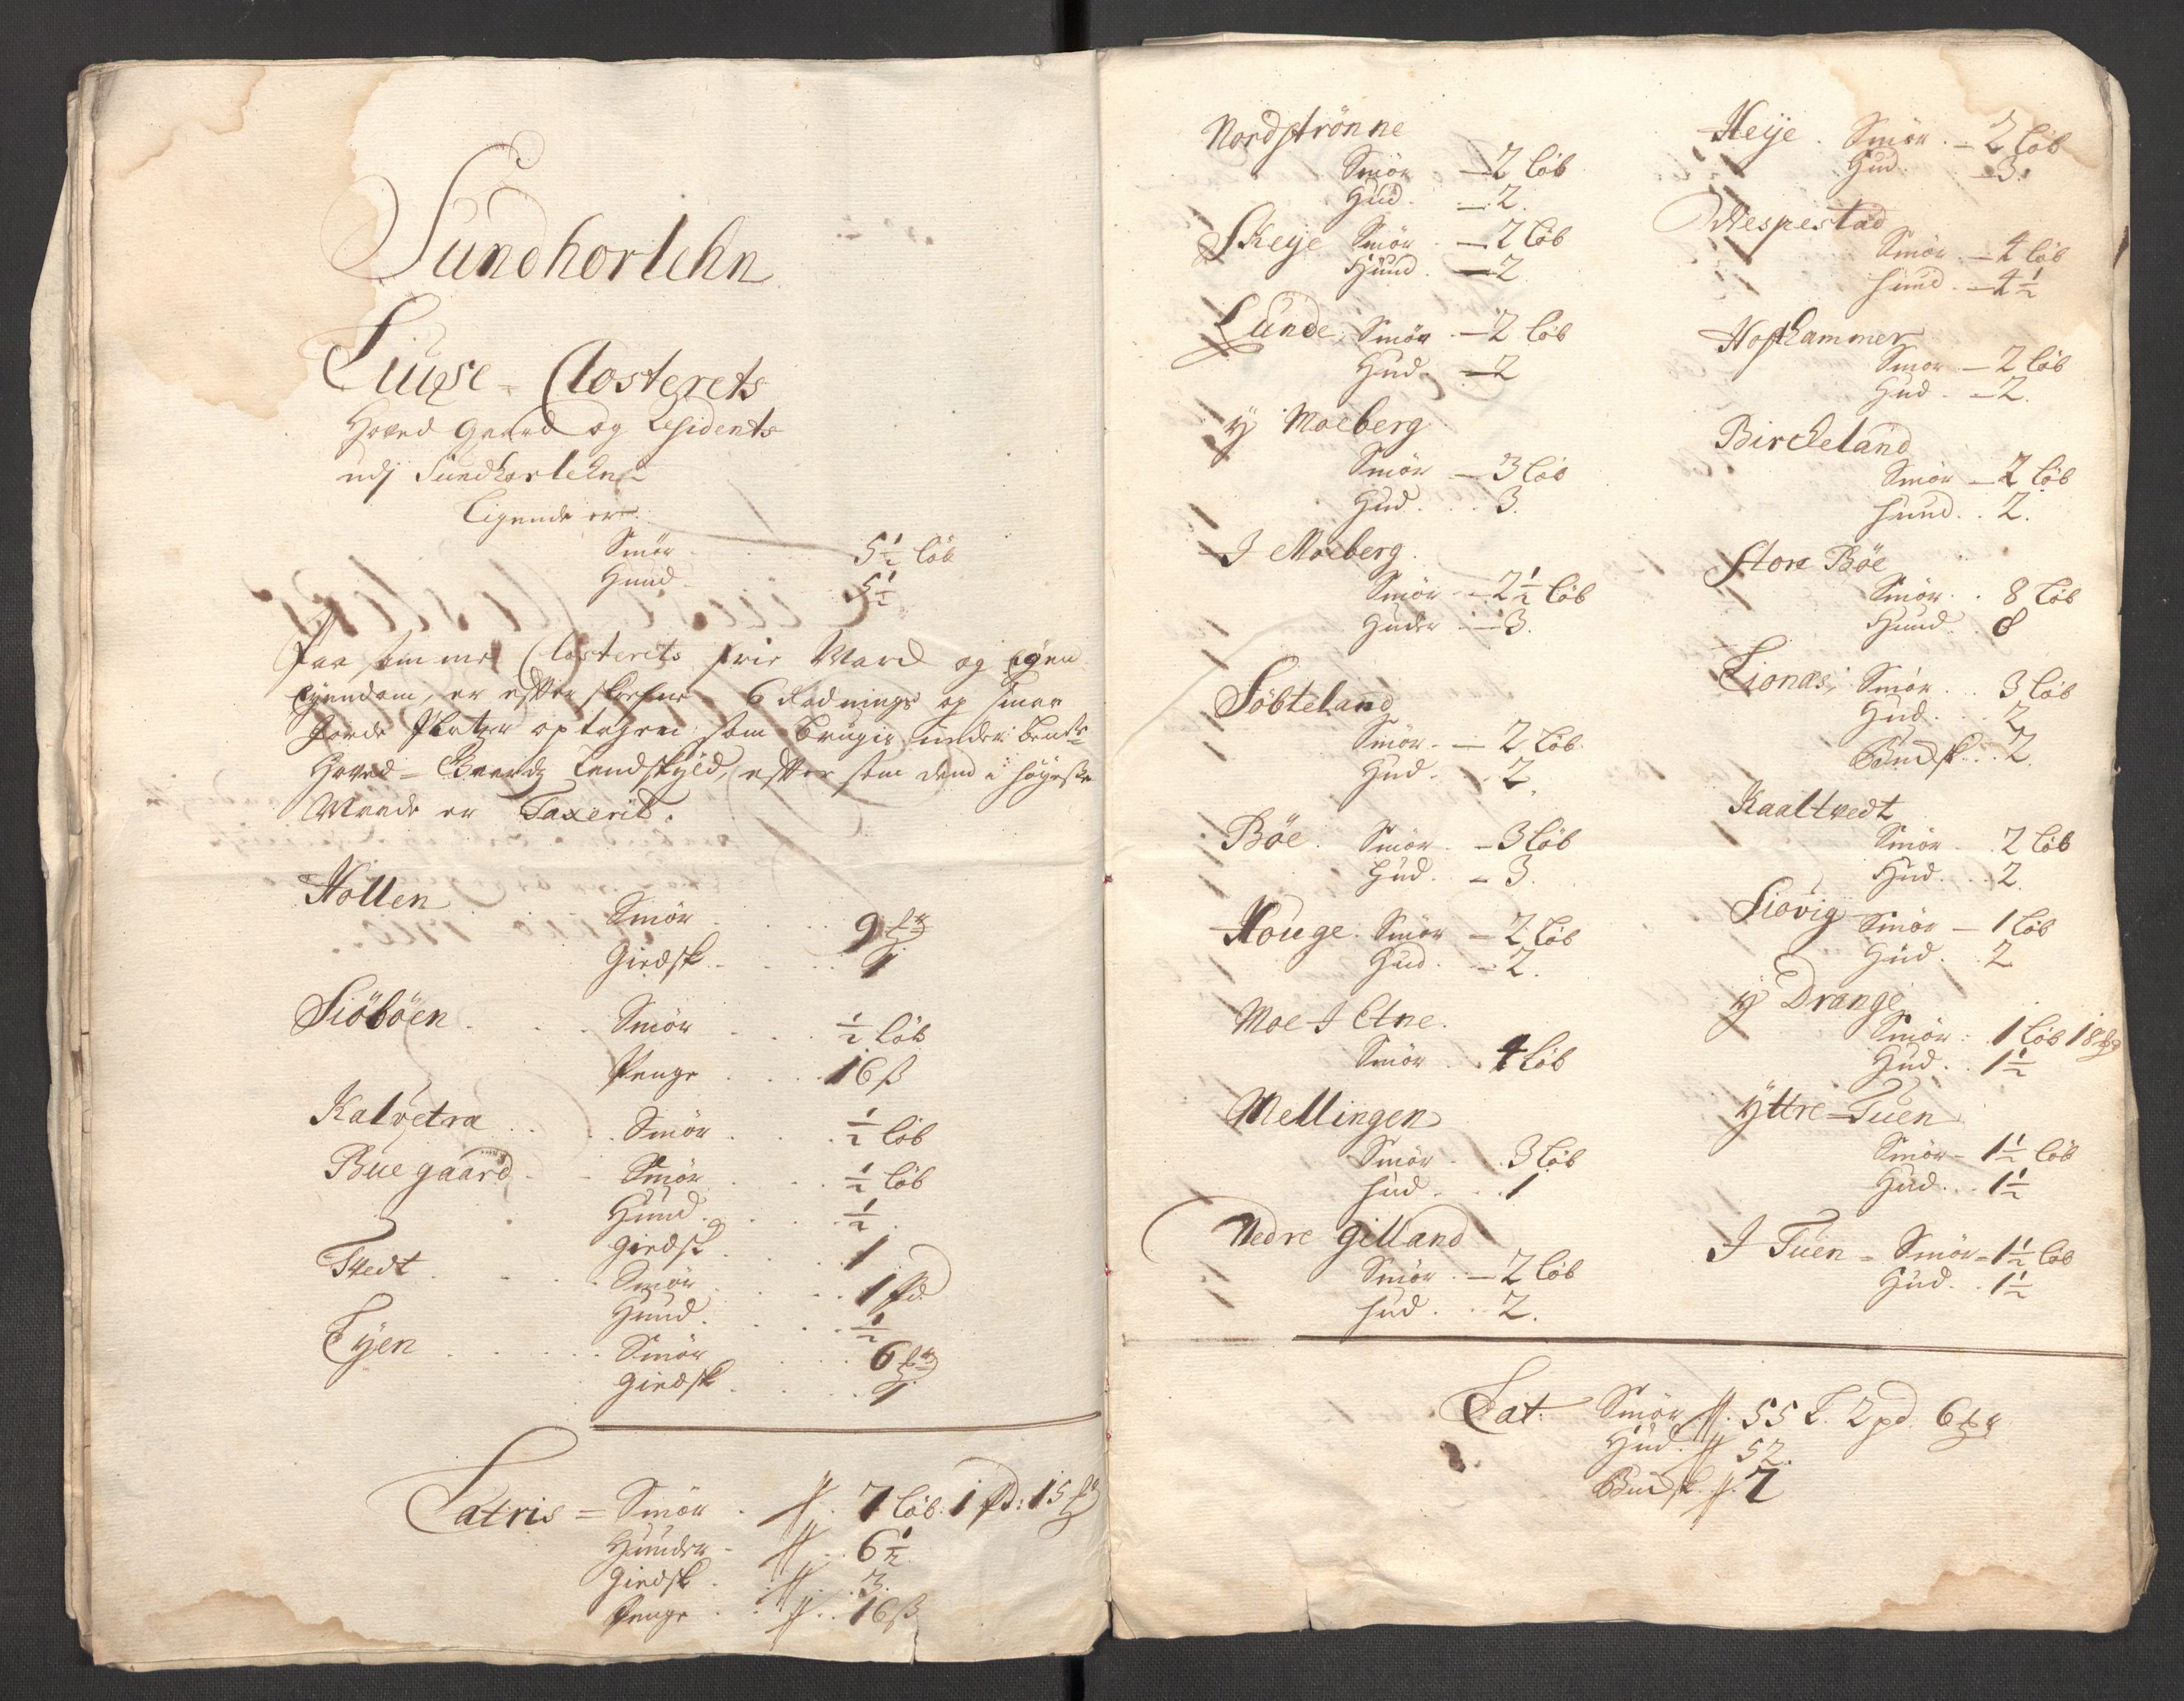 Sundhorlehn
Liuse-Closterets
Hoved Gaard og Residents
udj Sundhorlehn
Ligende er:
Smör 5½ löb
Huud 5½
Paa samme Closterets frie March og Egen
Eyendom, er effterskrefne 6 Rødnings og smaa
Jorde Pletzer optagen som brugis under bemte
Hoved-Gaardz Landskyld, effter som dend i höyeste
Maade er Taxerit.
Hollen Smör 9 ℔
Giedsk. 1
Siöböen Smör ½ löb
Penge 16 ß
Kalvetra Smör ½ löb
Bue gaard Smör ½ löb
Huud ½
Giedsk. 1
Tvedt Smör 1 pd.
Huud ½
Tyen Smör 6 ℔
Giedsk. 1
Latris = Smör // 7 löb: 1 pd: 15 ℔
Huuder // 6½
Giedsk. // 3.
Penge // 16 ß
Nordströnne
Smör - 2 löb
Hud - 2.
Skeye Smör - 2 löb
Huud - 2
Lunde Smör - 2 löb
Hud - 2
y Moeberg
Smör - 3 löb
Hud 3.
J Moeberg.
Smör - 2½ löb
Huder - 3.
Söbteland
Smör - 2 löb.
Hud 2.
Böe. Smör - 3 löb
Hud - 3.
Houge. Smör - 2 löb
Hud - 2.
Moe J Etne.
Smör 4 löb
Mellingen
Smör 3 löb
Hud 1
Nedre Gilland
Smör - 2 löb
Hud 2.
Heye. Smör - 2 löb
Hud - 3.
Wespestad
Smör - 4 löb
Huud - 4½
Hofhammer
Smör - 2 löb
Hud - 2.
Bircheland
Smör - 2 löb
Huud 2.
Store Böe
Smör 8 löb
Huud 8
Lionæs, Smör 3 löb
Hud 2
Budsk. 2.
Kaaltvedt
Smör 2 löb
Hud 2.
Siövig Smör - 1 löb
Hud. 2
y Drange
Smör 1 löb 18 ℔
Hud 1½
Yttre-Tuen
Smör - 1½ löb
Hud 1½
J Tuen - Smör - 1½ löb
Hud 1½
Lat. Smör // 55 L. 2 pd. 6 ℔
Hud. // 52.
Budsk. // 2